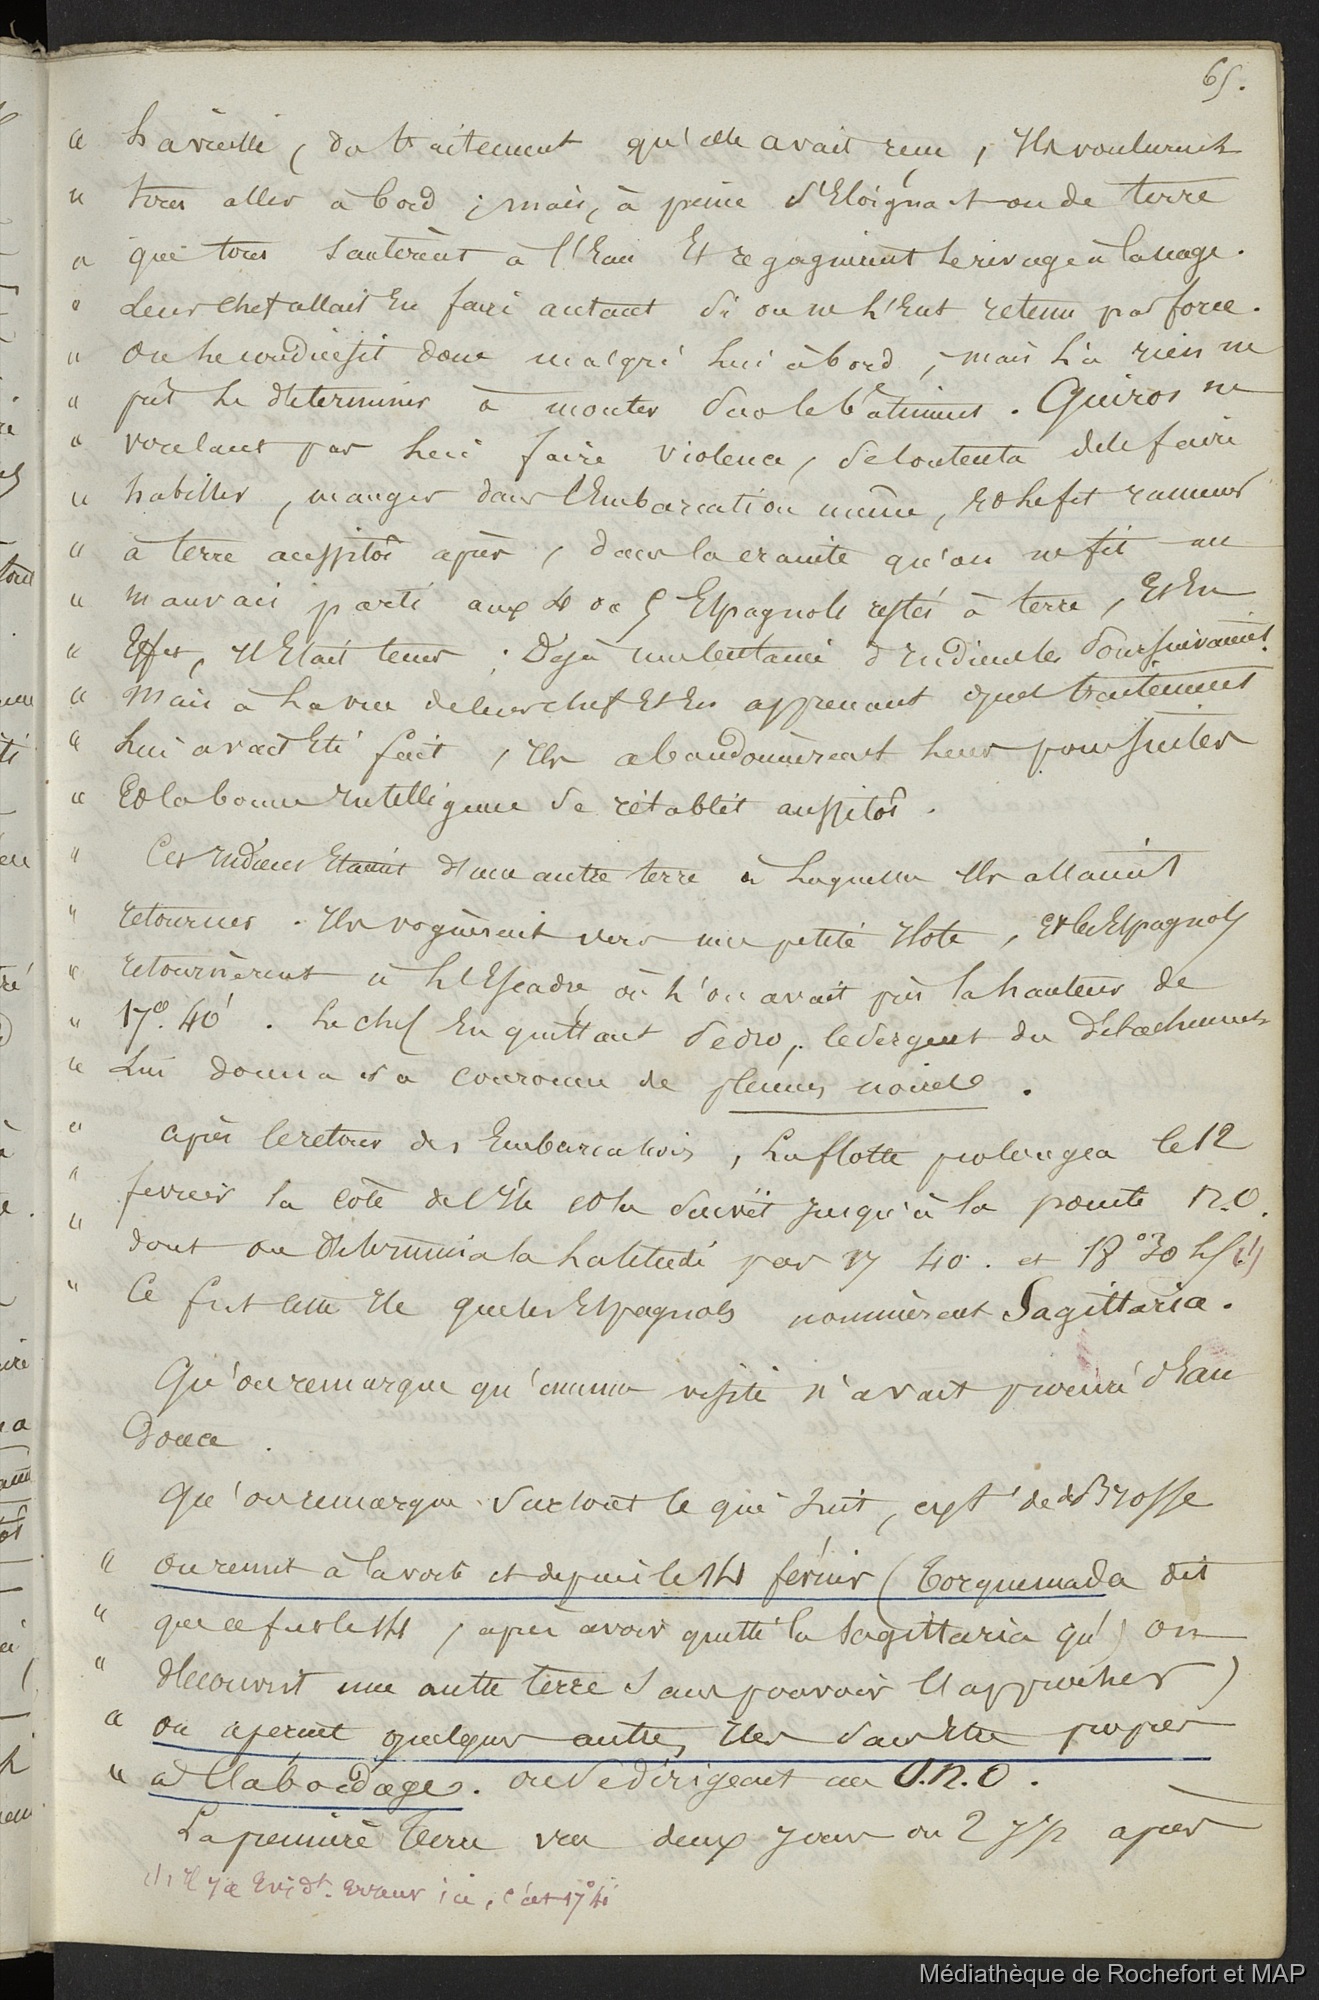 65.
" la vieille, du traitement qu'elle avait reçu, Ils voulurent
" tous aller à bord ; mais, à peine s'Eloigna t on de terre
" que tous sauterent à l'Eau Et regagnèrent le rivage à la nage.
" Leur chef allait En faire autant si on ne l'Eut retenu par force.
" On le conduisit donc malgré lui à bord, mais là rien ne
" put le determiner à monter sur le bâtiment. Quiros ne
" voulant pas lui faire violence, se contenta de le faire
" habiller, manger dans l'Embarcation même, et le fit ramener
" à terre aussitôt après, dans la crainte qu'on ne fit un
" mauvais parti aux 4 ou 5 Espagnols restés à terre, Et En
" Effet, Il Etait tems ; Déjà une centaine d'Indiens les poursuivaient.
" Mais à la vue de leur chef Et En apprenant quel traitement
" lui avait Eté fait, Ils abandonnèrent leurs poursuites
" Et la bonne Intelligence se rétablit aussitôt.
" Ces Indiens Etaient d'une autre terre à laquelle Ils allaient
" retourner. Ils voguèrent vers une petite Ilote, et les Espagnols
" retournèrent à l'Escadre où l'on avait pris la hauteur de
" 17°. 40'. Le chef En quittant Pedro, le sergent du détachement
" Lui donna sa couronne de plumes noires.
" après le retour des Embarcations, La flotte prolongea le 12
" fevrier la côte de l'Ile et la suivit jusqu'à la pointe N.O.
" dont on détermina la latitude par 17 40. et 18° 30 (1)
" Ce fut cette Ile que les Espagnols nommèrent Sagittaria.
Qu'on remarque qu'aucune visite n'avait procuré d'Eau
Douce.
Qu'on remarque surtout ce qui suit, de de Brosse
" On remit à la voile et depuis le 14 février (Torquemada dit
" que ce fut le 14, après avoir quitté la Sagittaria qu') on
" découvrit une autre terre sans pouvoir l'approcher)
" on aperçut quelques autres Iles sans Etre propres
" à l'abordage. on se dirigeant au O.N.O.
La première terre vue deux jours ou 2 j 1/2 après
(1) Il y a Evidt. Erreur ici, c'est 17° 41'
Médiathèque de Rochefort et MAP